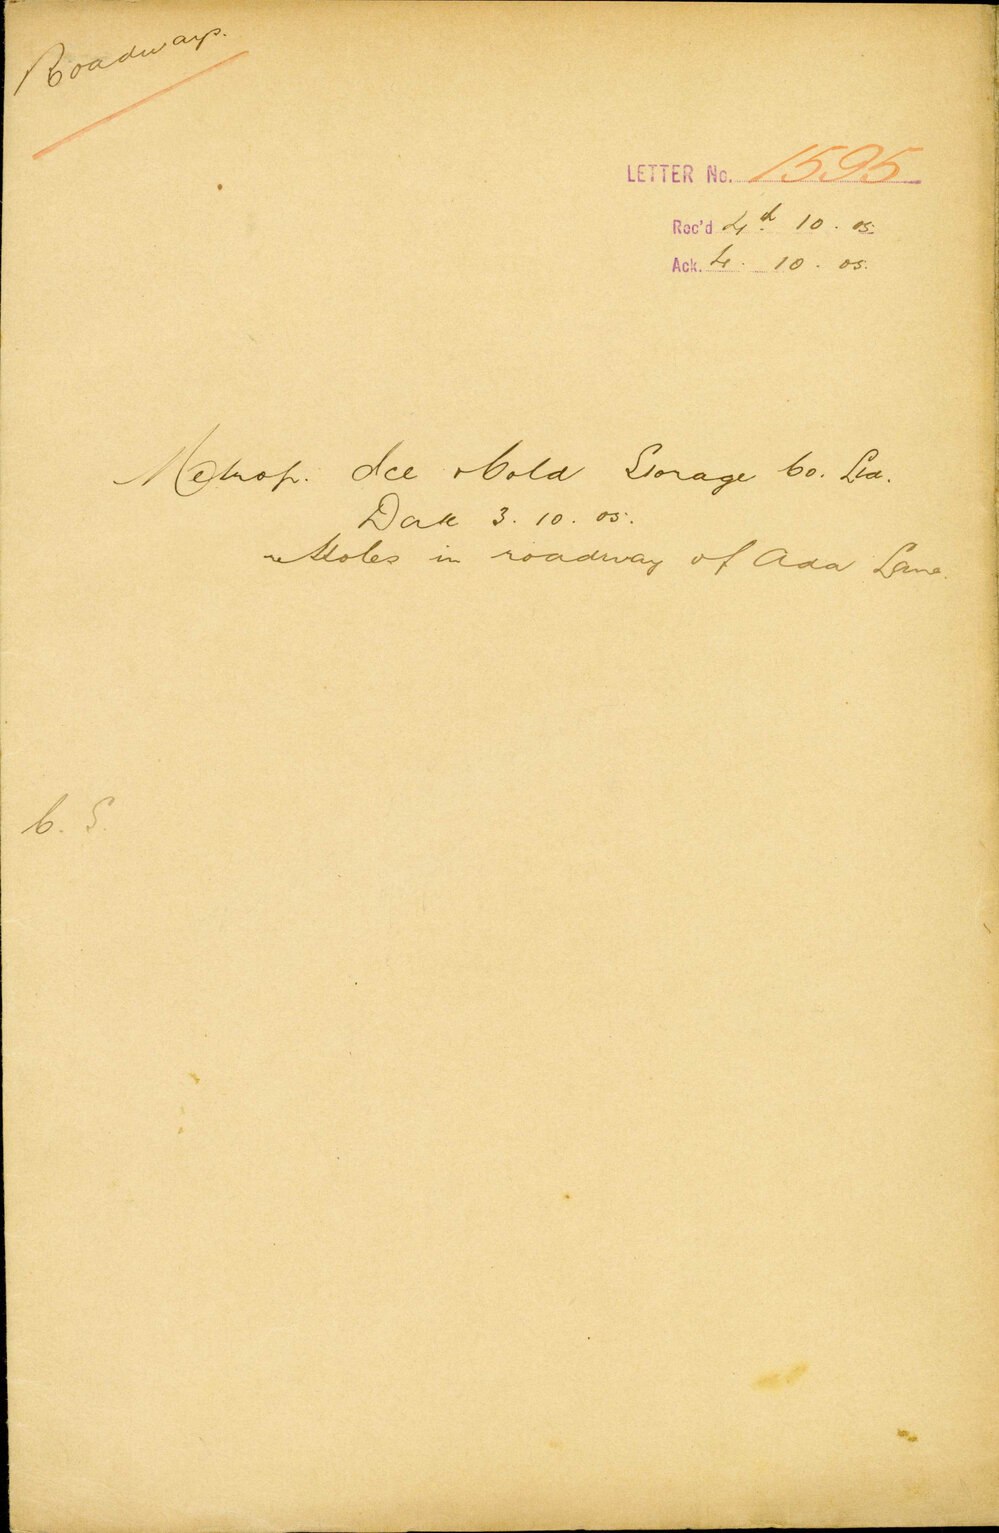 Roadways.
LETTER No. 1595
Rec'd 4d. 10. 05.
Ack. 4. 10. 05.
Metrop. Ice & Cold Storage Co. Ltd.
Date 3. 10. 05.
re Holes in roadway of Ada Lane.
C. S.